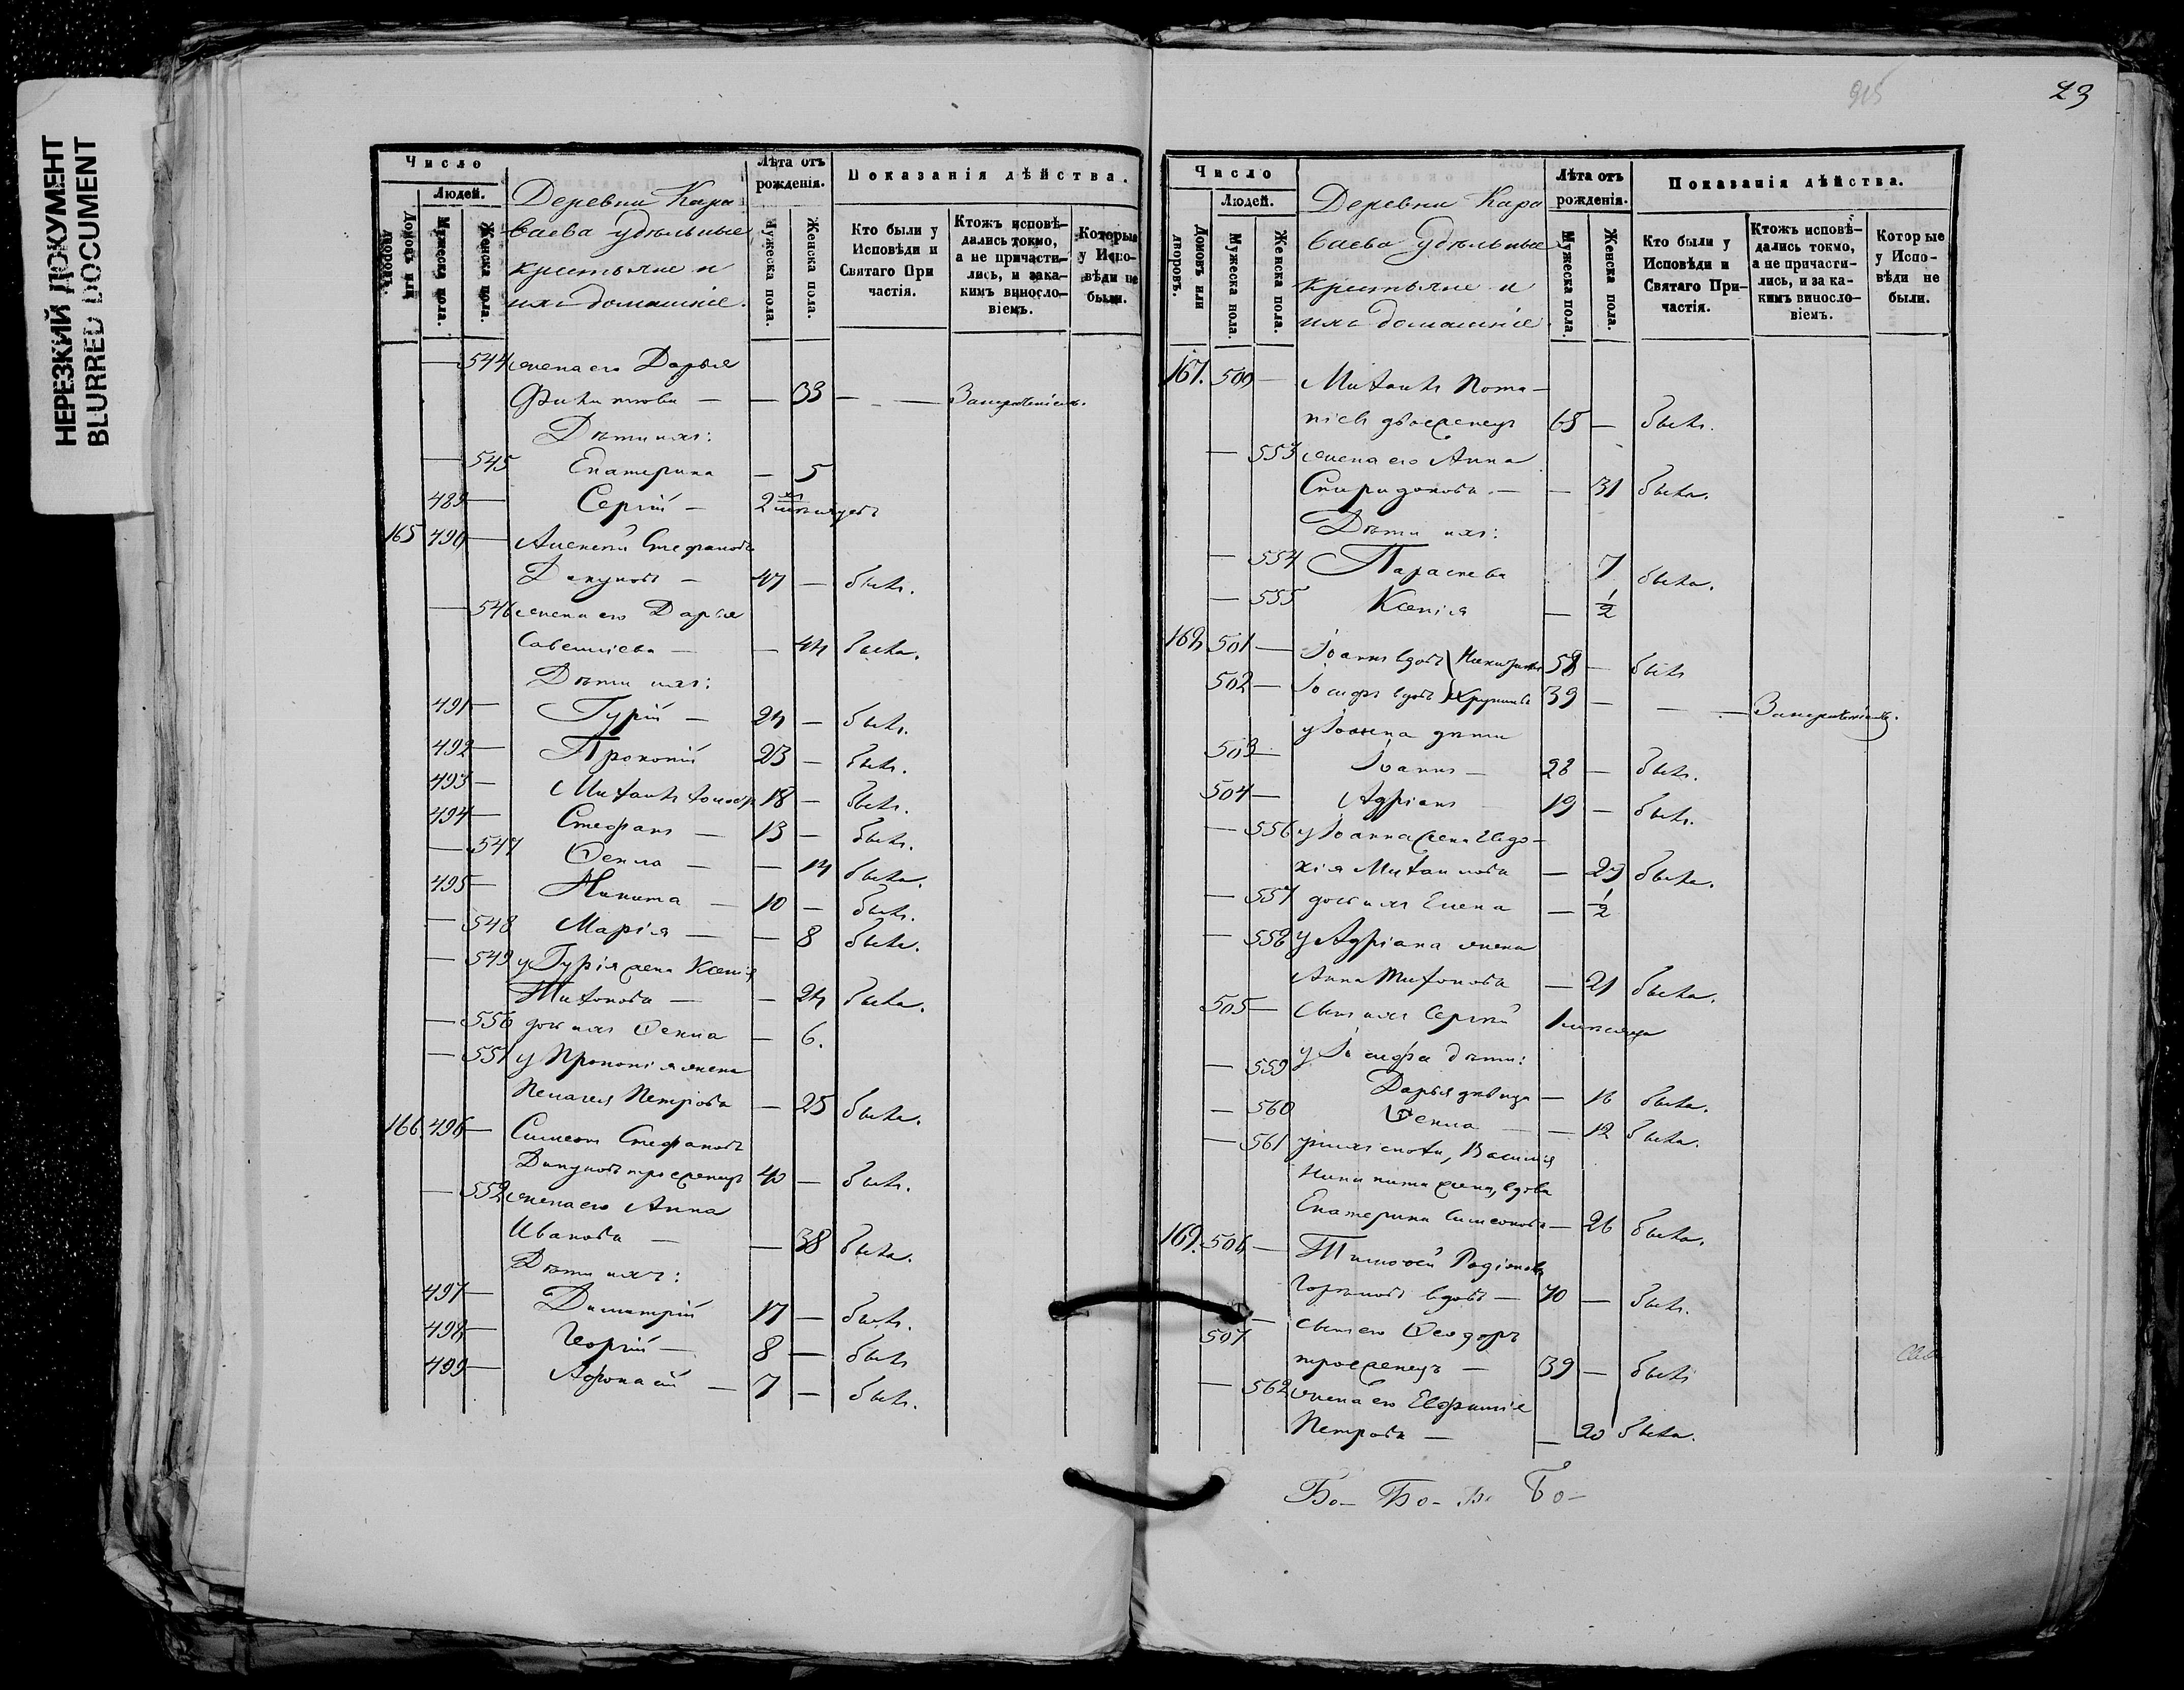 НЕРЕЗКИЙ ДОКУМЕНТ
BLURRED DOCUMENT
Число
Людей.
Домовъ или дворовъ.
Мужеска пола.
Женска пола.
Деревни Кара
ваева удѣльные
крестьяне и
ихъ домашніе.
Лѣта отъ рожденія.
Мужеска пола.
Женска пола.
Показанія дѣйства.
Кто были у Исповѣди и Святаго При частія.
Ктожъ исповѣ-дались токмо, а не причасти-лись, и зака-кимъ винослo-віемъ.
Которые у Испо-вѣди не были.
— 544 жена его Дарья
— — 33 — — —
Дѣти ихъ:
— 545 Екатерина — 5
489 — Сергій — 2 мѣсяцевъ
165 490 — Алексѣй Стефановъ
— 47 — былъ.
— 546 жена его Дарья
Савельева — — 44 была.
Дѣти ихъ:
491 — Гурій — 24 — былъ.
492 — Прокопій 23 — былъ.
493 — Михаилъ холост 18 — былъ.
494 — Стефанъ — 13 — былъ.
— 547 Ѳекла — — 14 была.
495 — Никита — 10 — былъ.
— 548 Марія — — 8 была.
— 549 у Гурія жена Ксенія
Тихонова — — 24 была.
— 550 дочь ихъ Ѳекла — 6.
— 551 у Прокопія жена
Пелагея Петрова — 25 была.
166. 496 — Симеонъ Стефановъ
троеженецъ 40 — былъ.
— 552 жена его Анна
Иванова — — 38 была.
Дѣти ихъ:
497 — Димитрій 17 — былъ.
498 — Георгій — 8 — былъ
499 — Афонасій — 7 — былъ.
915
23
Число
Людей.
Домовъ или дворовъ.
Мужеска пола
Женска пола.
Деревни Кара
ваева удѣльные
крестьяне и
ихъ домашніе.
Лѣта отъ рожденія.
Мужеска пола.
Женска пола.
Показанія дѣйства.
Кто были у Исповѣди и Святаго При-частія.
Ктожъ исповѣ-дались токмо, а не причасти-лись, и за ка-кимъ винослo-віемъ.
Которые у Испо-вѣди не были.
167. 500 — Михаилъ Пота-
піевъ двоеженецъ 65 — былъ.
— 553 жена его Анна
Спиридонова — — 31 была.
Дѣти ихъ:
— 554 Параскева 7 была.
— 555 Ксенія — 1/2
168 501 — Іоаннъ вдовъ 58 — былъ
502 — Іосифъ вдовъ 39 — — —
у Іоанна дѣти
503 — Іоаннъ — 28 — былъ.
504 — Адріанъ 19 — былъ.
— 556 у Іоанна жена Евдо-
кія Михаилова — 29 была.
— 557 дочь ихъ Елена — 1/2
— 558 у Адріана жена
Анна Тихонова — 21 была.
505 — сынъ ихъ Сергій 1 мѣсяца
у Іосифа дѣти:
— 559 Дарья дѣвица — 16 была.
— 560 Ѳекла — — 12 была.
— 561 Василія
Никитина жена, вдова
Екатерина Симеонова — 26 была.
169. 506 — Тимоѳей Родіоновъ
вдовъ — 70 — былъ.
507 — сынъ его Ѳеодоръ
троеженецъ — 39 — былъ
— 562 жена его Евфимія
Петрова — — 20 была.
Бо- Бо- Бо-